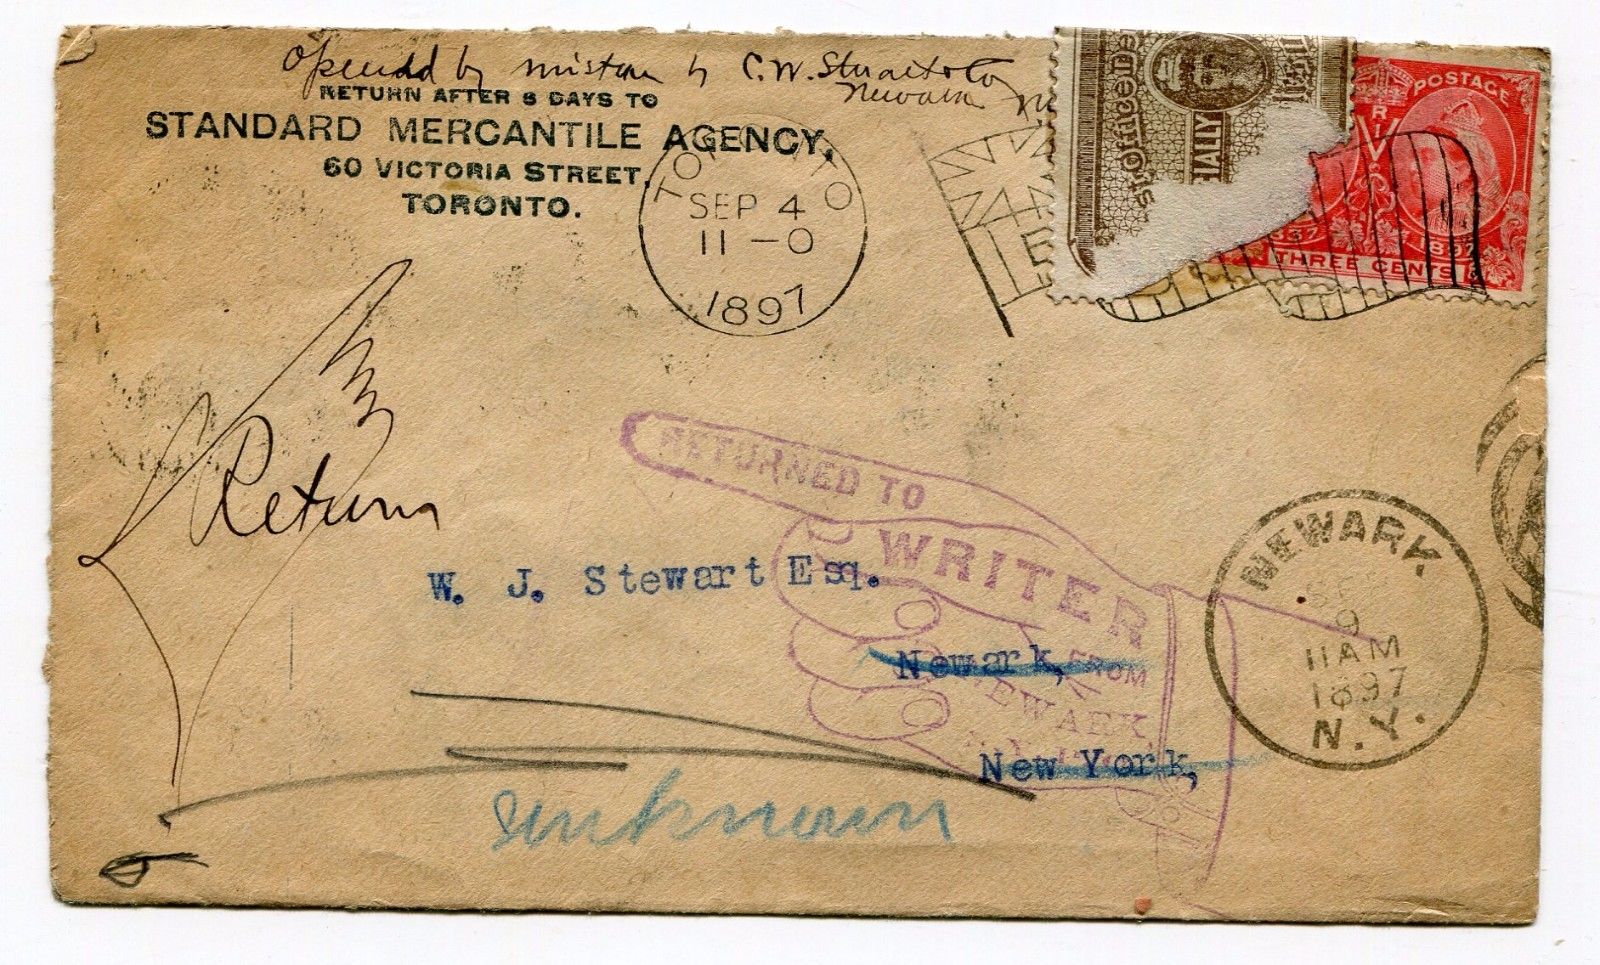 Opened by mistake by C. W. Stuart & Co
Newark N
RETURN AFTER 8 DAYS TO
STANDARD MERCANTILE AGENCY,
60 VICTORIA STREET,
TORONTO.
TORONTO
SEP 4
11-0
1897
st Office De
IALLY
POSTAGE
V R I
1837 1897
THREE CENTS
Return
RETURNED TO
WRITER
FROM
NEWARK,
N.Y.
W. J. Stewart Esq.
Newark,
New York,
NEWARK.
9
11 AM
1897
N.Y.
unknown